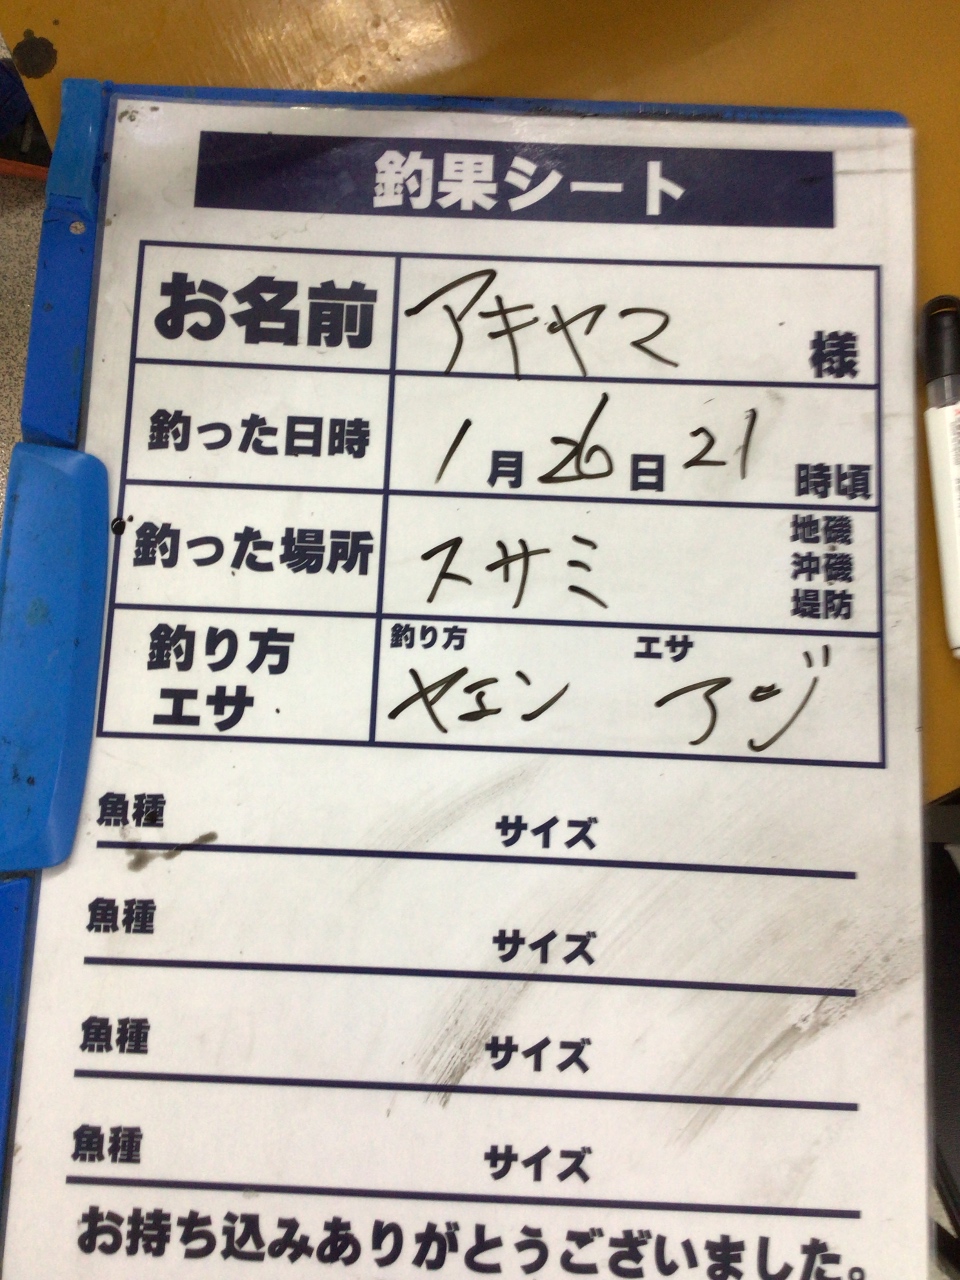 釣果シート
お名前 アキヤマ 様
釣った日時 1月26日 21 時頃
釣った場所 スサミ 地磯 沖磯 堤防
釣り方 エサ 釣り方 ヤエン エサ アジ
魚種 サイズ
魚種 サイズ
魚種 サイズ
魚種 サイズ
お持ち込みありがとうございました。